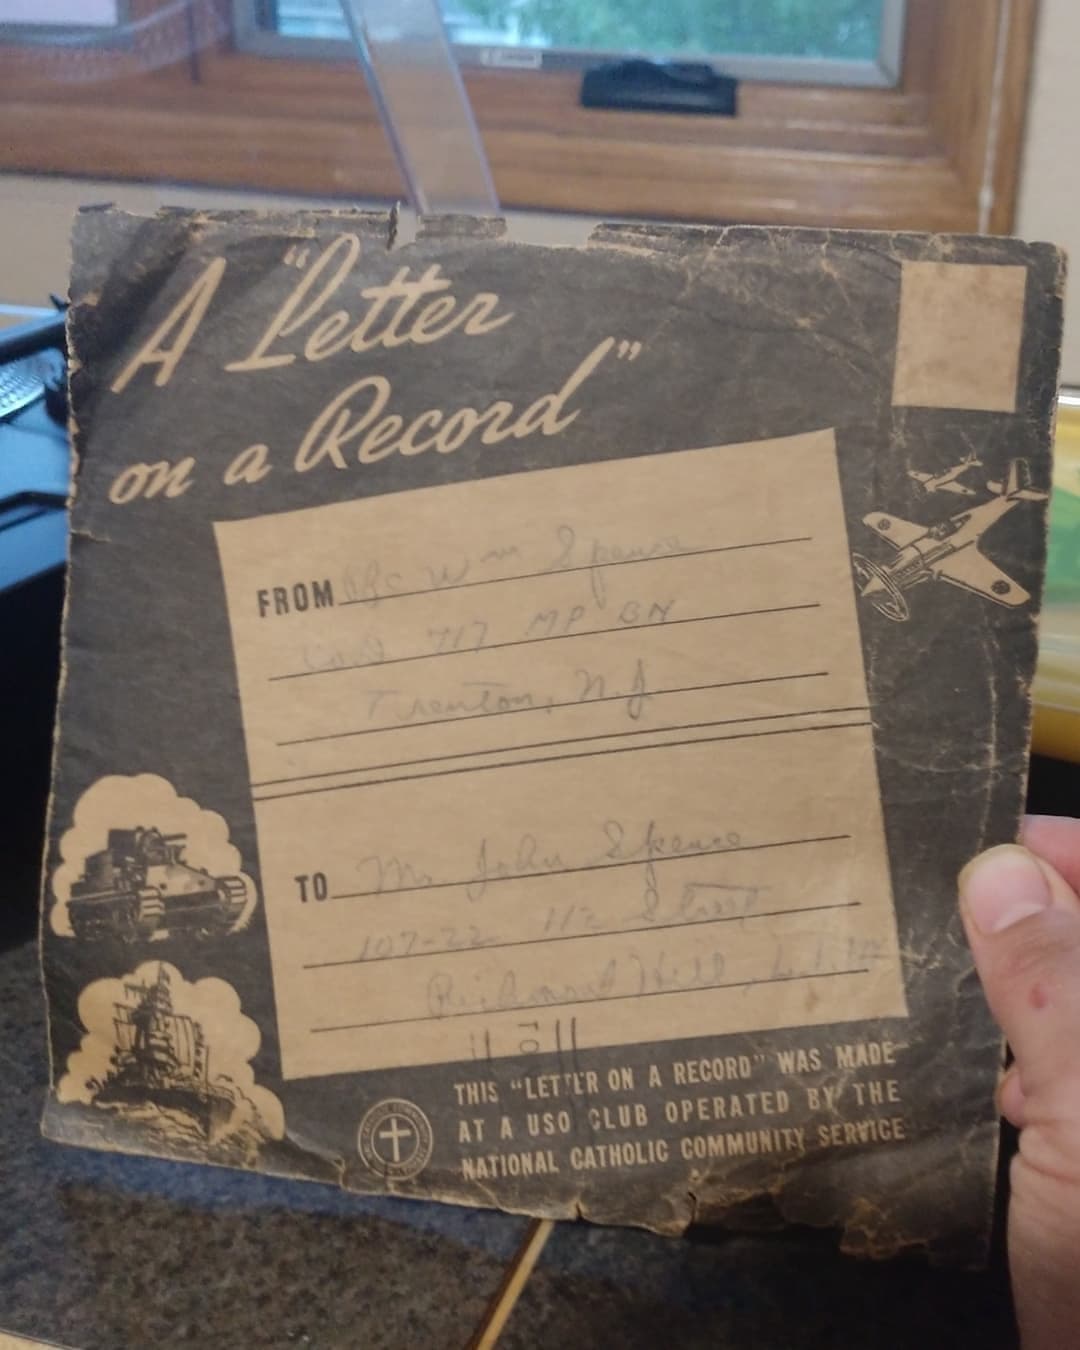 A "Letter
on a Record"
FROM Wm Spence
717 MP BN
Trenton, N.J.
TO Mr John Spence
107-22 112 Street
Richmond Hill, L.I.
THIS "LETTER ON A RECORD" WAS MADE
AT A USO CLUB OPERATED BY THE
NATIONAL CATHOLIC COMMUNITY SERVICE